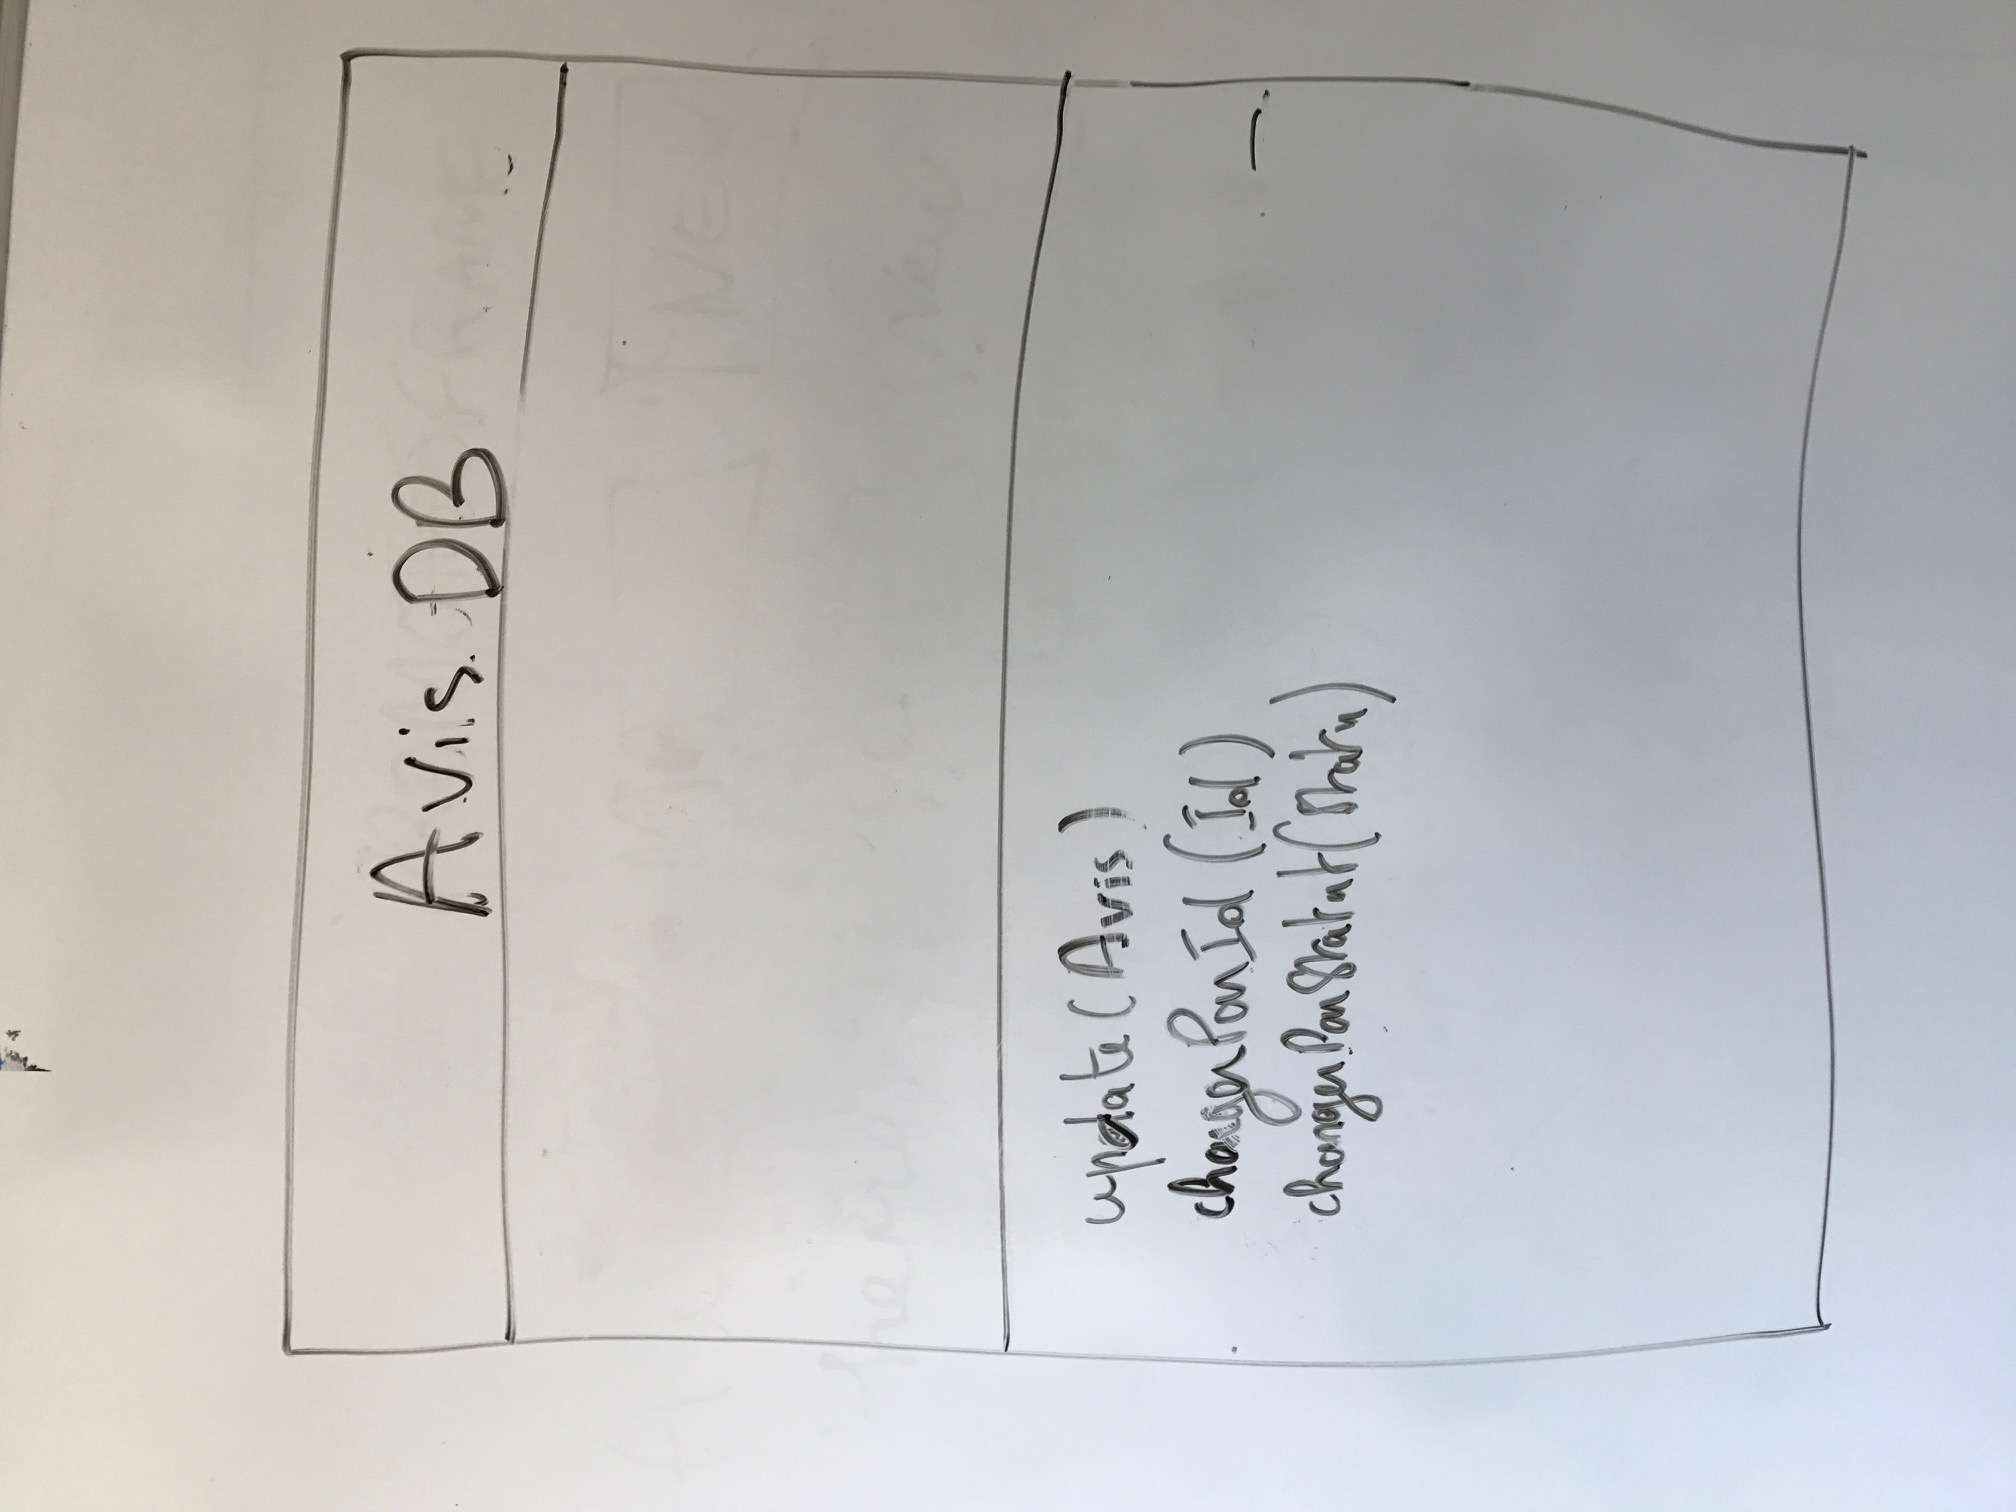 Avis DB
update(Avis)
changerParId (Id)
changerParStatut(Statu)